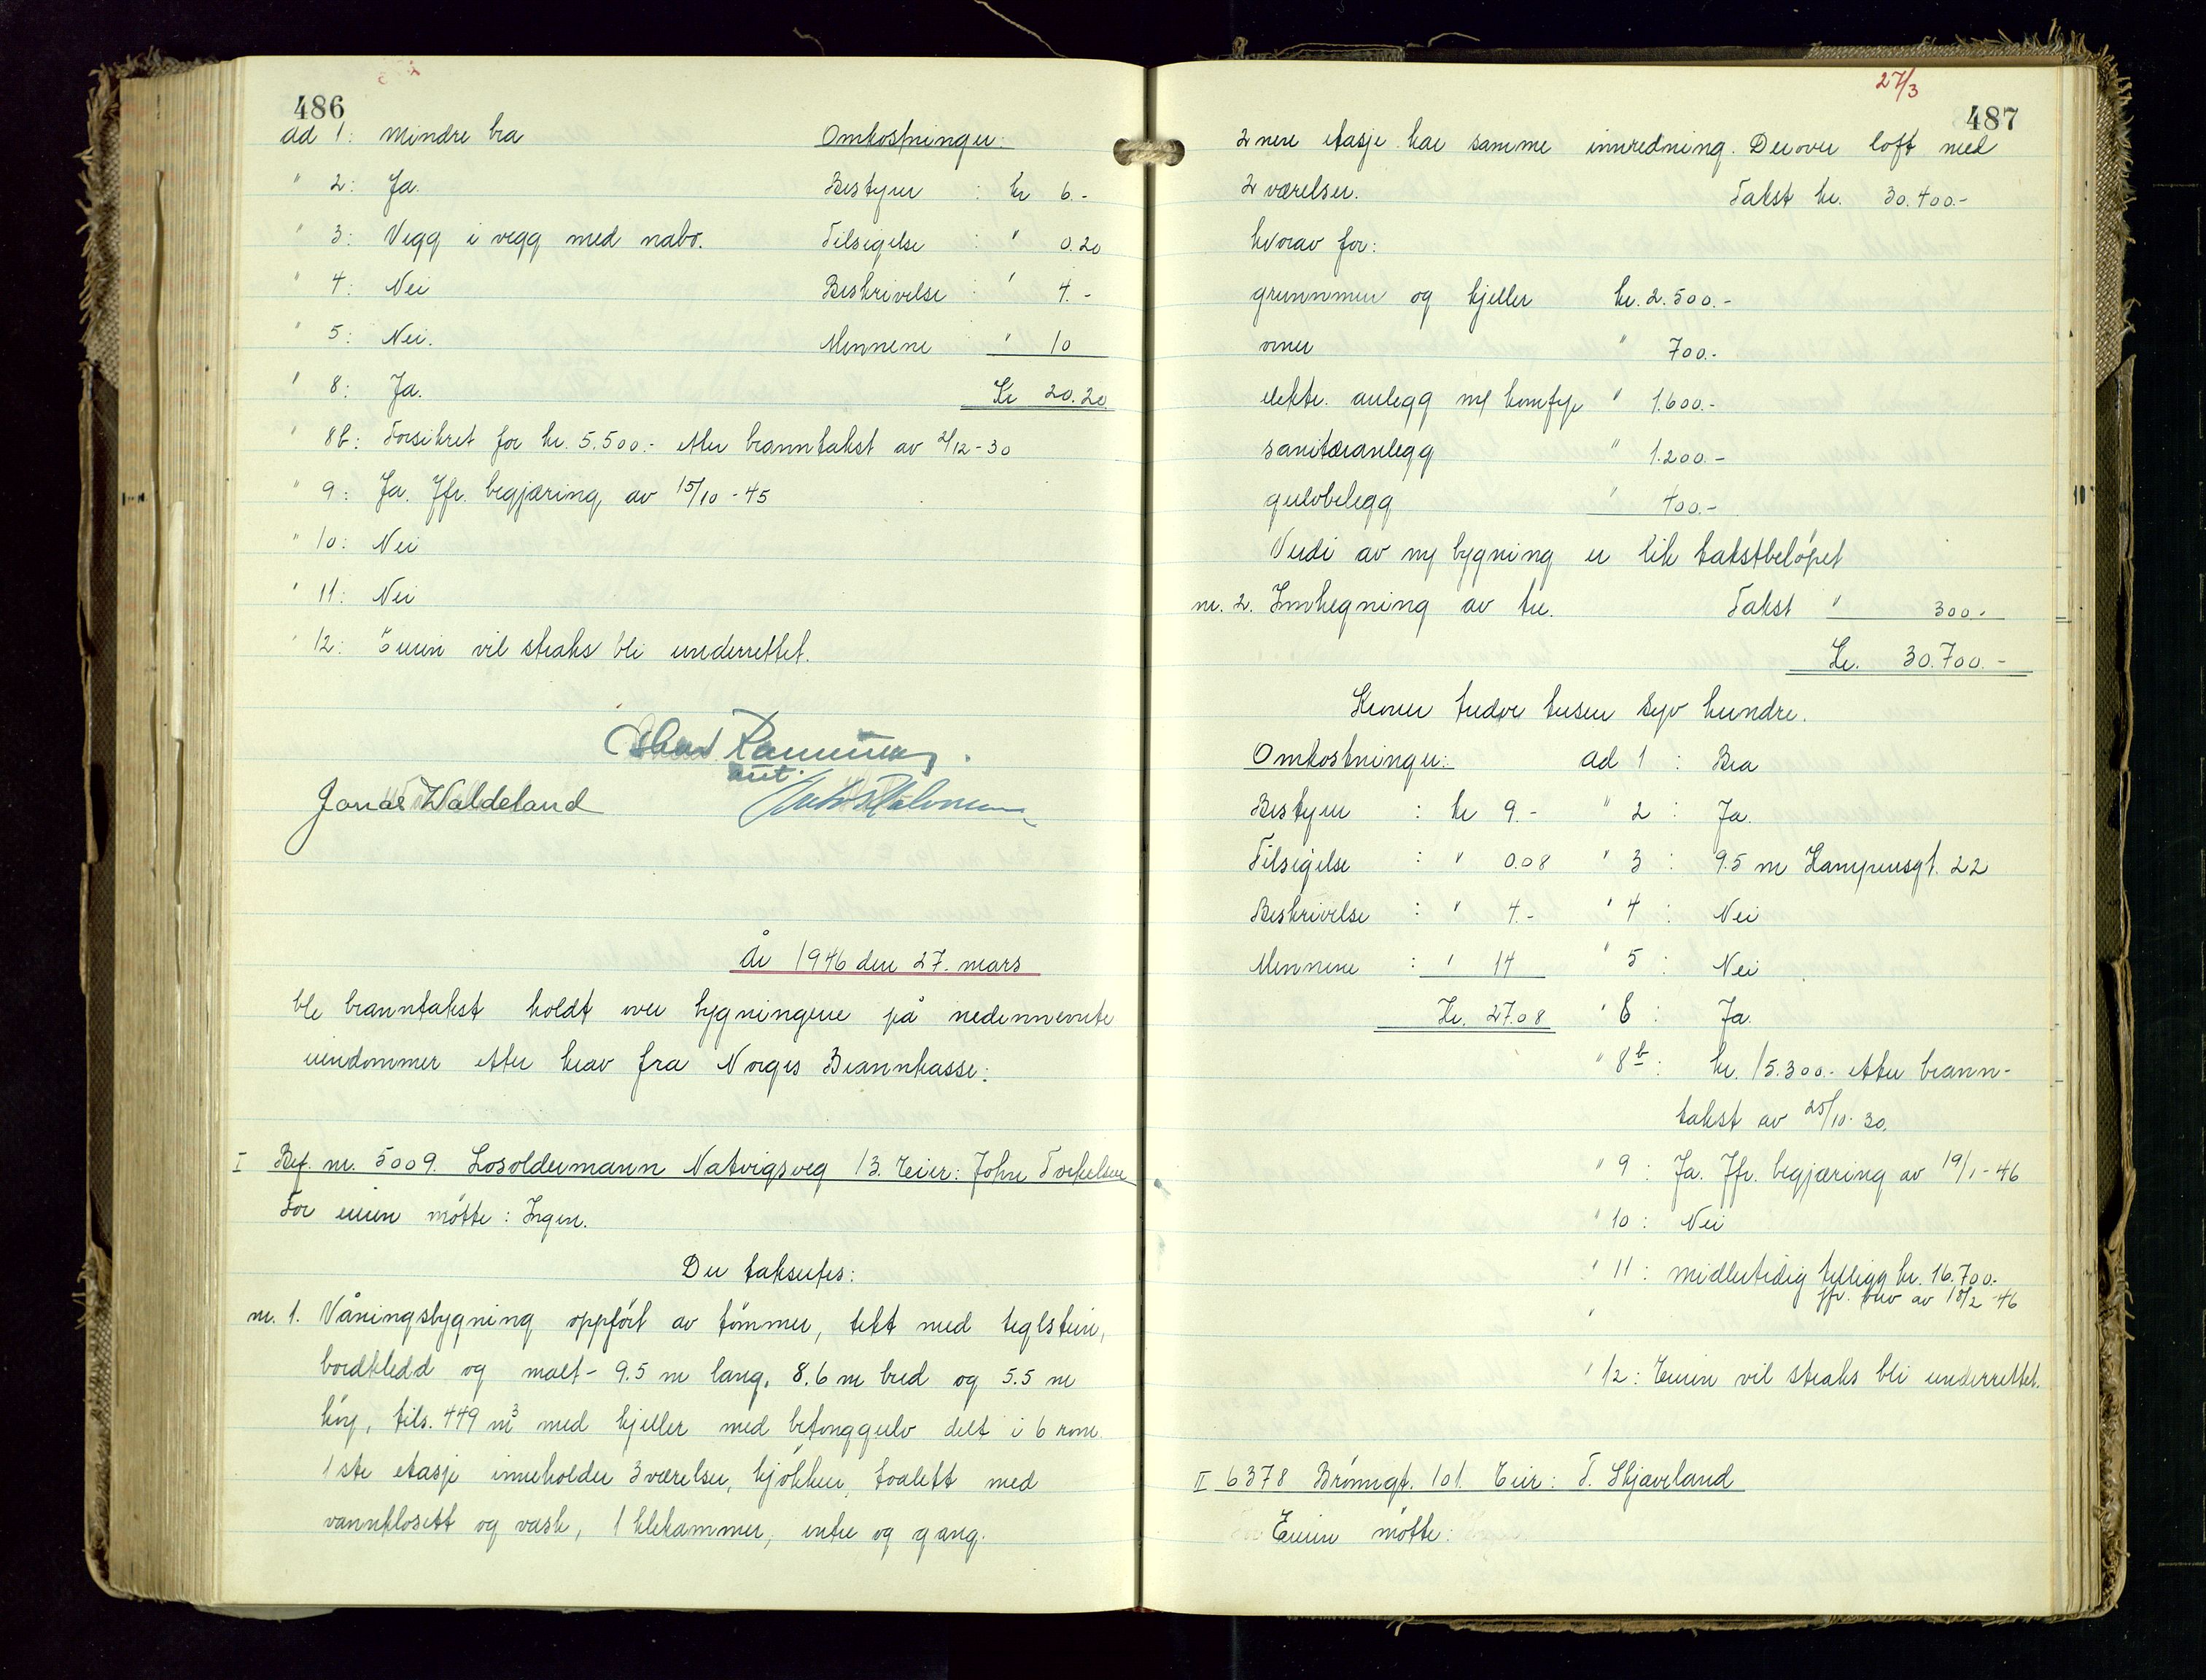 486
ad 1: Mindre bra
" 2: Ja.
" 3: Vegg i vegg med nabo.
" 4: Nei
" 5: Nei.
" 8: Ja.
" 8b: Forsikret for kr. 5.500.- etter branntakst av 2/12-30
" 9: Ja. Jfr. begjæring av 15/10-45
" 10: Nei
" 11: Nei
" 12: Eieren vil straks bli underrettet.
Omkostninger:
Bestyrer : kr 6.-
Tilsigelse : " 0.20
Beskrivelse : " 4.-
Mennene " 10
Kr 20.20
Jonas Waldeland
År 1946 den 27. mars
ble branntakst holdt over bygningene på nedennevnte
eiendommer etter krav fra Norges Brannkasse:
I Bef. nr. 5009. Losoldermann Natvigsveg 13. Eier: John Torkelsen
For eieren møtte: Ingen.
Der takseres:
nr. 1. Våningsbygning oppført av tømmer, tekt med teglstein,
bordkledd og malt - 9.5 m lang, 8.6 m bred og 5.5 m
høy, tils. 449 m3 med kjeller med betonggulv delt i 6 rom.
1ste etasje inneholder 3 værelser, kjøkken, toalett med
vannklosett og vask, 1 klekammer, entre og gang.
27/3
487
2nen etasje har samme innredning. Derover loft med
2 værelser. Takst kr. 30.400.-
hvorav for:
grunnmur og kjeller kr. 2.500.-
ovner " 700.-
elektr. anlegg m/ komfyr " 1.600.-
sanitæranlegg " 1.200.-
gulvbelegg " 400.-
Verdi av ny bygning er lik takstbeløpet
nr. 2. Innhegning av tre. Takst " 300.-
Kr. 30.700.-
Kroner tredve tusen syv hundre.
Omkostninger:
Bestyrer : kr 9.-
Tilsigelse : " 0.08
Beskrivelse : " 4.-
Mennene : " 14
Kr. 27.08
ad 1 : Bra
" 2 : Ja.
" 3 : 9.5 m Kampensgt. 22
" 4 : Nei
" 5 : Nei
" 8 : Ja.
" 8b : kr. 15.300.- etter brann-
takst av 25/10-30.
" 9 : Ja. Jfr. begjæring av 19/1-46
" 10 : Nei
" 11 : Midlertidig tillegg kr. 16.700.-
jfr. brev av 18/2-46
"
" 12 : Eieren vil straks bli underrettet.
II 6378 Brønngt. 101. Eier: T. Skjæveland
Eieren møtte: